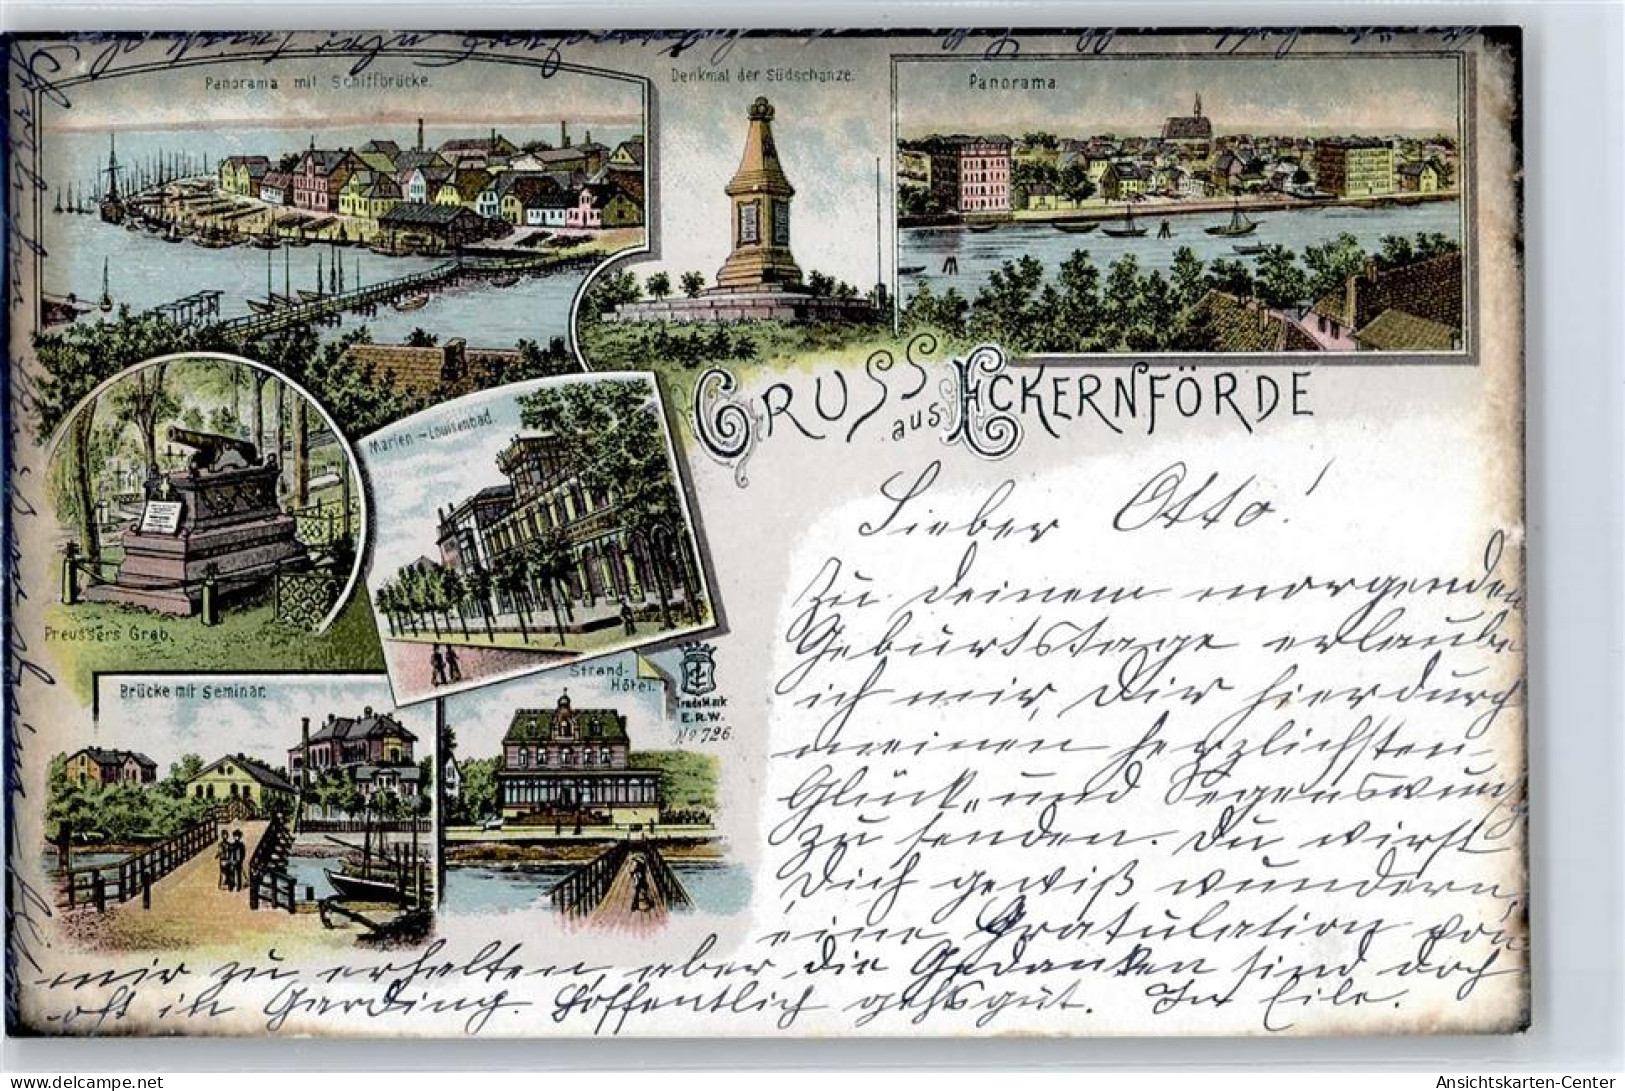 Panorama mit Schiffbrücke.
Denkmal der Südschanze.
Panorama
GRUSS aus ECKERNFÖRDE
Marien-Louisenbad.
Preussers Grab.
Brücke mit Seminar.
Strand-
Hôtel.
Trade Mark
E.R.W.
No 726.
Lieber Otto!
Zu Deinem morgenden
Geburtstage erlaube
ich mir, Dir hierdurch
meinen herzlichsten
Glück- und Segenswunsch
zu senden. Du wirst
Dich gewiß wundern,
eine Gratulation von
mir zu erhalten, aber die Gedanken sind doch
oft in Garding. Hoffentlich geht's gut. In Eile.
Ansichtskarten-Center
delcampe.net